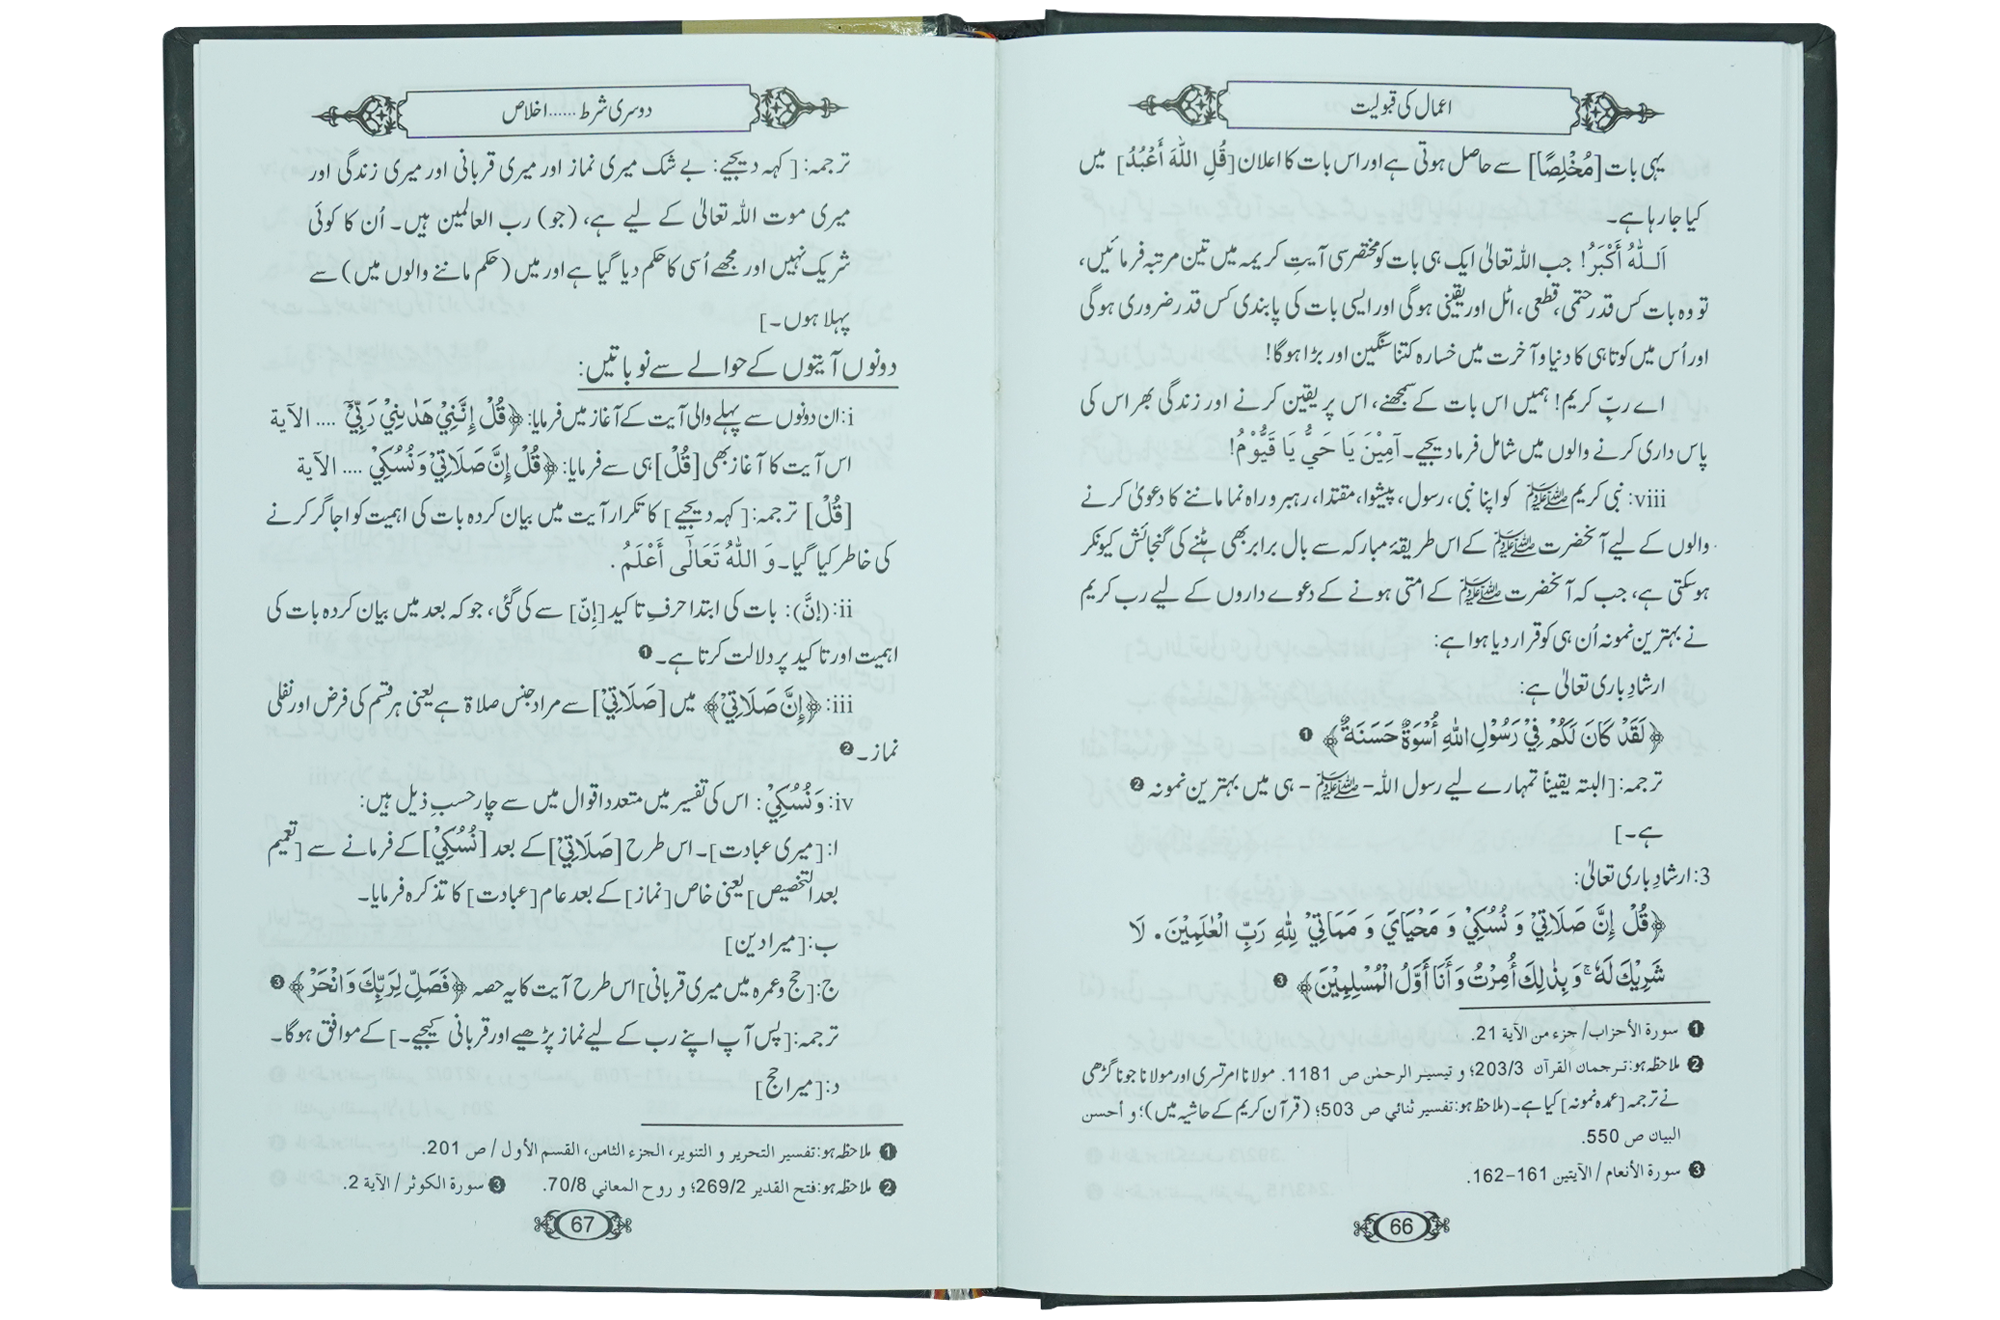 اعمال کی قبولیت
یہی بات [مُخْلِصًا] سے حاصل ہوتی ہے اور اس بات کا اعلان [قُلِ اللّٰهَ أَعْبُدُ] میں
کیا جا رہا ہے۔
اَللّٰهُ أَكْبَرُ! جب اللہ تعالیٰ ایک ہی بات کو مختصر سی آیتِ کریمہ میں تین مرتبہ فرمائیں،
تو وہ بات کس قدر حتمی، قطعی، اٹل اور یقینی ہوگی اور ایسی بات کی پابندی کس قدر ضروری ہوگی
اور اُس میں کوتاہی کا دنیا و آخرت میں خسارہ کتنا سنگین اور بڑا ہوگا!
اے ربِّ کریم! ہمیں اس بات کے سمجھنے، اس پر یقین کرنے اور زندگی بھر اس کی
پاس داری کرنے والوں میں شامل فرما دیجیے۔ آمِيْنَ يَا حَيُّ يَا قَيُّوْمُ!
viii: نبی کریم ﷺ کو اپنا نبی، رسول، پیشوا، مقتدا، رہبر و راہ نما ماننے کا دعویٰ کرنے
والوں کے لیے آنحضرت ﷺ کے اس طریقۂ مبارکہ سے بال برابر بھی ہٹنے کی گنجائش کیونکر
ہوسکتی ہے، جب کہ آنحضرت ﷺ کے امتی ہونے کے دعوے داروں کے لیے رب کریم
نے بہترین نمونہ اُن ہی کو قرار دیا ہوا ہے:
ارشادِ باری تعالیٰ ہے:
﴿لَقَدْ كَانَ لَكُمْ فِيْ رَسُوْلِ اللّٰهِ أُسْوَةٌ حَسَنَةٌ﴾ ❶
ترجمہ: [البتہ یقیناً تمہارے لیے رسول اللہ- ﷺ - ہی میں بہترین نمونہ ❷
ہے۔]
3: ارشادِ باری تعالیٰ:
﴿قُلْ إِنَّ صَلَاتِيْ وَ نُسُكِيْ وَ مَحْيَايَ وَ مَمَاتِيْ لِلّٰهِ رَبِّ الْعٰلَمِيْنَ. لَا
شَرِيْكَ لَهٗ ج وَ بِذٰلِكَ أُمِرْتُ وَ أَنَا أَوَّلُ الْمُسْلِمِيْنَ﴾ ❸
❶ سورة الأحزاب/ جزء من الآية 21.
❷ ملاحظہ ہو: ترجمان القرآن 203/3؛ و تيسير الرحمٰن ص 1181. مولانا امرتسری اور مولانا جونا گڑھی
نے ترجمہ [عمدہ نمونہ] کیا ہے۔ (ملاحظہ ہو: تفسیر ثنائی ص 503؛ (قرآن کریم کے حاشیہ میں)؛ و أحسن
البیان ص 550.
❸ سورة الأنعام / الآيتين 161-162.
66
دوسری شرط ...... اخلاص
ترجمہ: [کہہ دیجیے: بے شک میری نماز اور میری قربانی اور میری زندگی اور
میری موت اللہ تعالیٰ کے لیے ہے، (جو) رب العالمین ہیں۔ اُن کا کوئی
شریک نہیں اور مجھے اُسی کا حکم دیا گیا ہے اور میں (حکم ماننے والوں میں) سے
پہلا ہوں۔]
دونوں آیتوں کے حوالے سے نو باتیں:
i: ان دونوں سے پہلے والی آیت کے آغاز میں فرمایا: ﴿قُلْ إِنَّنِيْ هَدٰىنِيْ رَبِّيْٓ .... الآية
اس آیت کا آغاز بھی [قُلْ] ہی سے فرمایا: ﴿قُلْ إِنَّ صَلَاتِيْ وَ نُسُكِيْ .... الآية
[قُلْ] ترجمہ: [کہہ دیجیے] کا تکرار آیت میں بیان کردہ بات کی اہمیت کو اجاگر کرنے
کی خاطر کیا گیا۔ وَ اللّٰهُ تَعَالٰٓى أَعْلَمُ.
ii: (إِنَّ): بات کی ابتدا حرفِ تاکید [إِنّ] سے کی گئی، جو کہ بعد میں بیان کردہ بات کی
اہمیت اور تاکید پر دلالت کرتا ہے۔ ❶
iii: ﴿إِنَّ صَلَاتِيْ﴾ میں [صَلَاتِيْ] سے مراد جنس صلاۃ ہے یعنی ہر قسم کی فرض اور نفلی
نماز۔ ❷
iv: وَ نُسُكِيْ: اس کی تفسیر میں متعدد اقوال میں سے چار حسبِ ذیل ہیں:
ا: [میری عبادت]۔ اس طرح [صَلَاتِيْ] کے بعد [نُسُكِيْ] کے فرمانے سے [تعمیم
بعد التخصیص] یعنی خاص [نماز] کے بعد عام [عبادت] کا تذکرہ فرمایا۔
ب: [میرا دین]
ج: [حج و عمرہ میں میری قربانی] اس طرح آیت کا یہ حصہ ﴿فَصَلِّ لِرَبِّكَ وَانْحَرْ﴾ ❸
ترجمہ: [پس آپ اپنے رب کے لیے نماز پڑھیے اور قربانی کیجیے۔] کے موافق ہوگا۔
د: [میرا حج]
❶ ملاحظہ ہو: تفسير التحرير و التنوير، الجزء الثامن، القسم الأول / ص 201.
❷ ملاحظہ ہو: فتح القدير 269/2؛ و روح المعاني 70/8. ❸ سورة الكوثر / الآية 2.
67